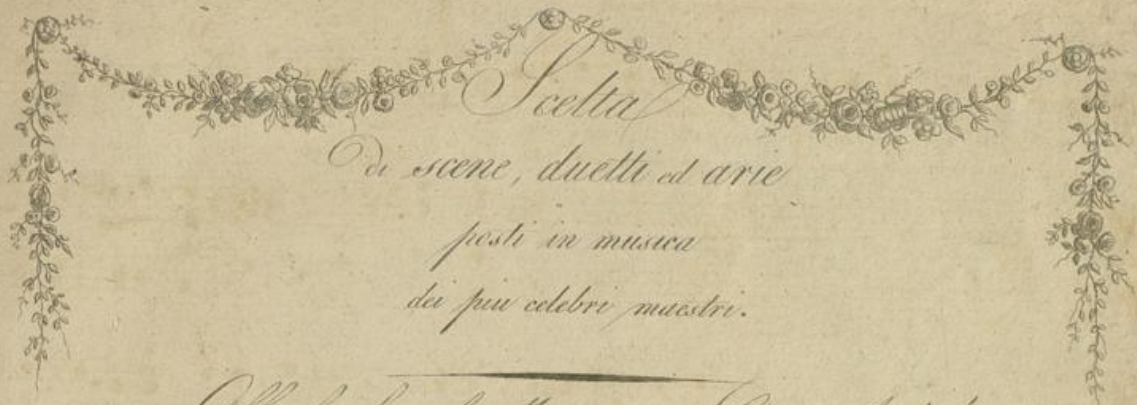 Scelta
di scene, duetti ed arie
posti in musica
dei piu celebri maestri.